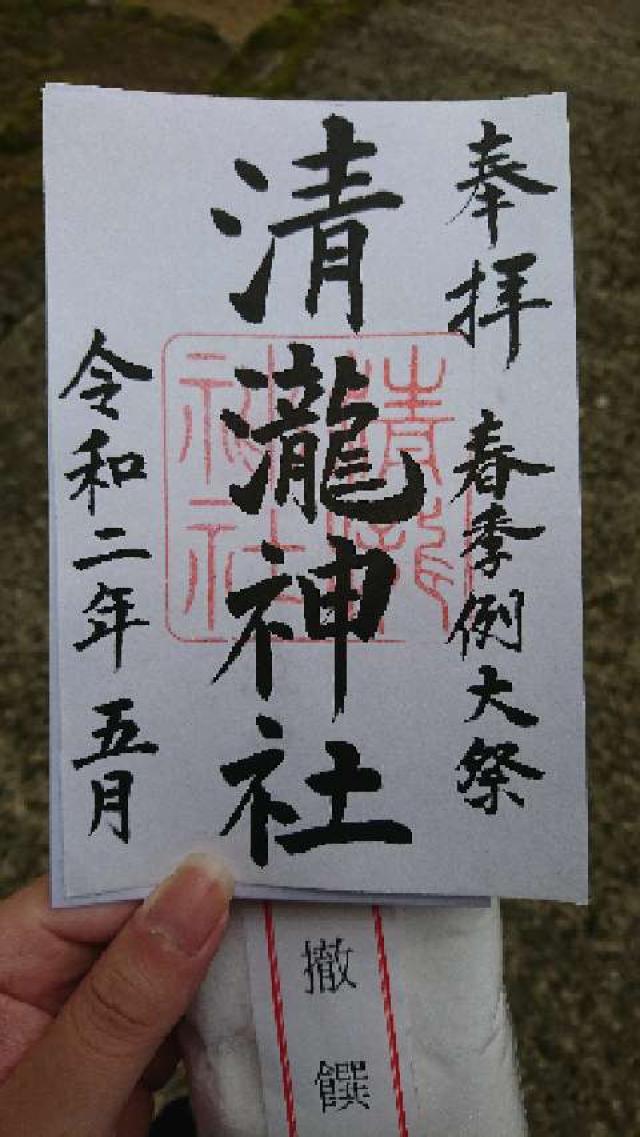 奉拝 春季例大祭
清瀧神社
清瀧神社
令和二年 五月
撤饌